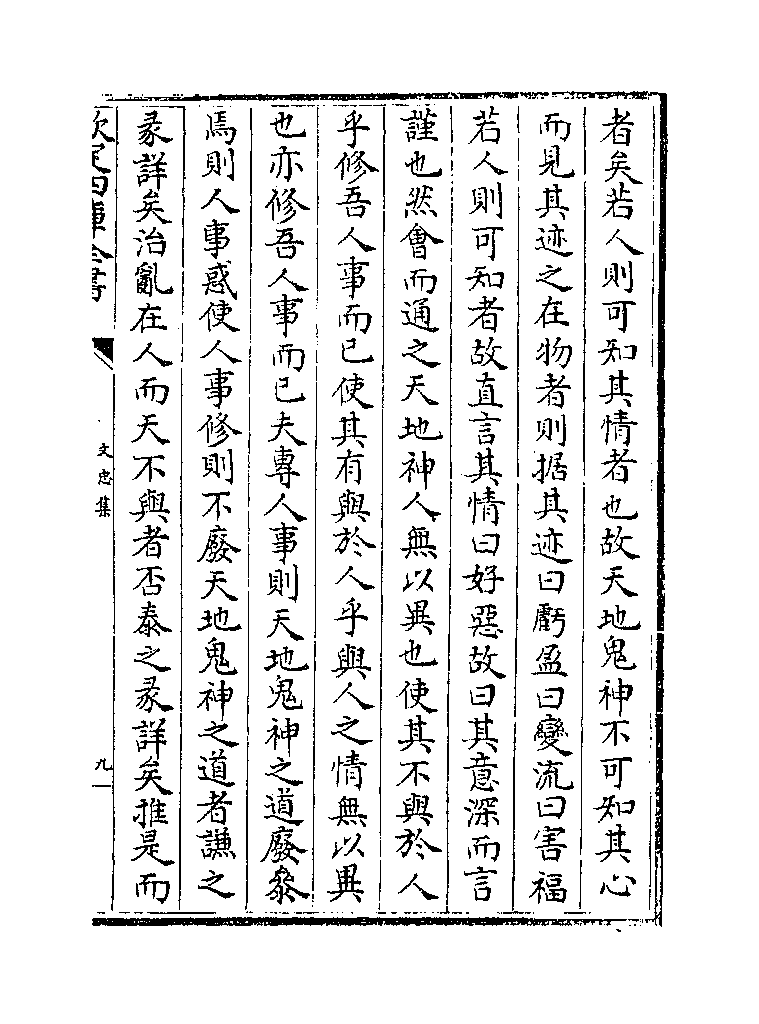 者矣若人則可知其情者也故天地鬼神不可知其心
而見其迹之在物者則据其迹曰虧盈曰變流曰害福
若人則可知者故直言其情曰好惡故曰其意深而言
謹也然會而通之天地神人無以異也使其不與於人
乎修吾人事而已使其有與於人乎與人之情無以異
也亦修吾人事而已夫專人事則天地鬼神之道廢參
焉則人事惑使人事修則不廢天地鬼神之道者謙之
彖詳矣治亂在人而天不與者否泰之彖詳矣推是而
欽定四庫全書
文忠集
九